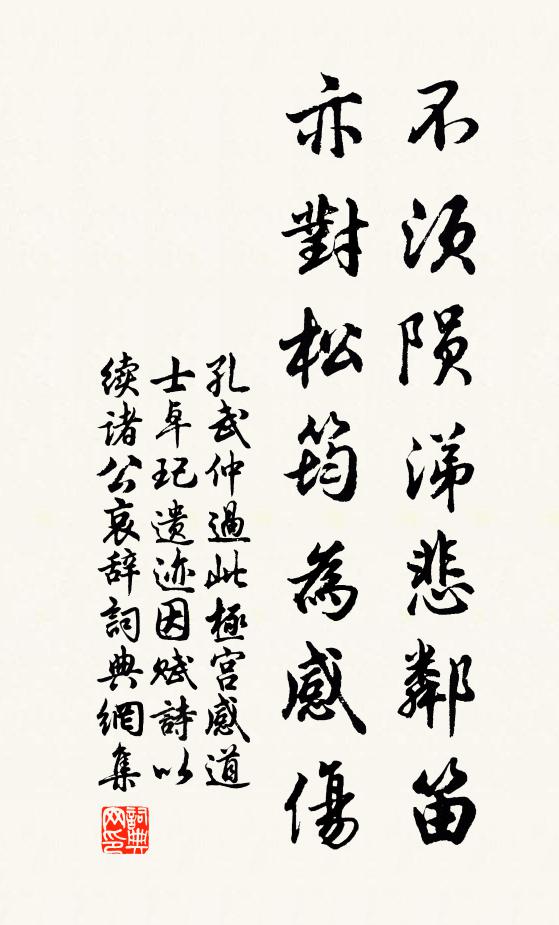 不须陨涕悲鄰笛
亦對松筠為感傷
孔武仲過此極宫感道
士卓玘遗迹因赋詩以
续诸公哀辞詞典網集
詞典
网印